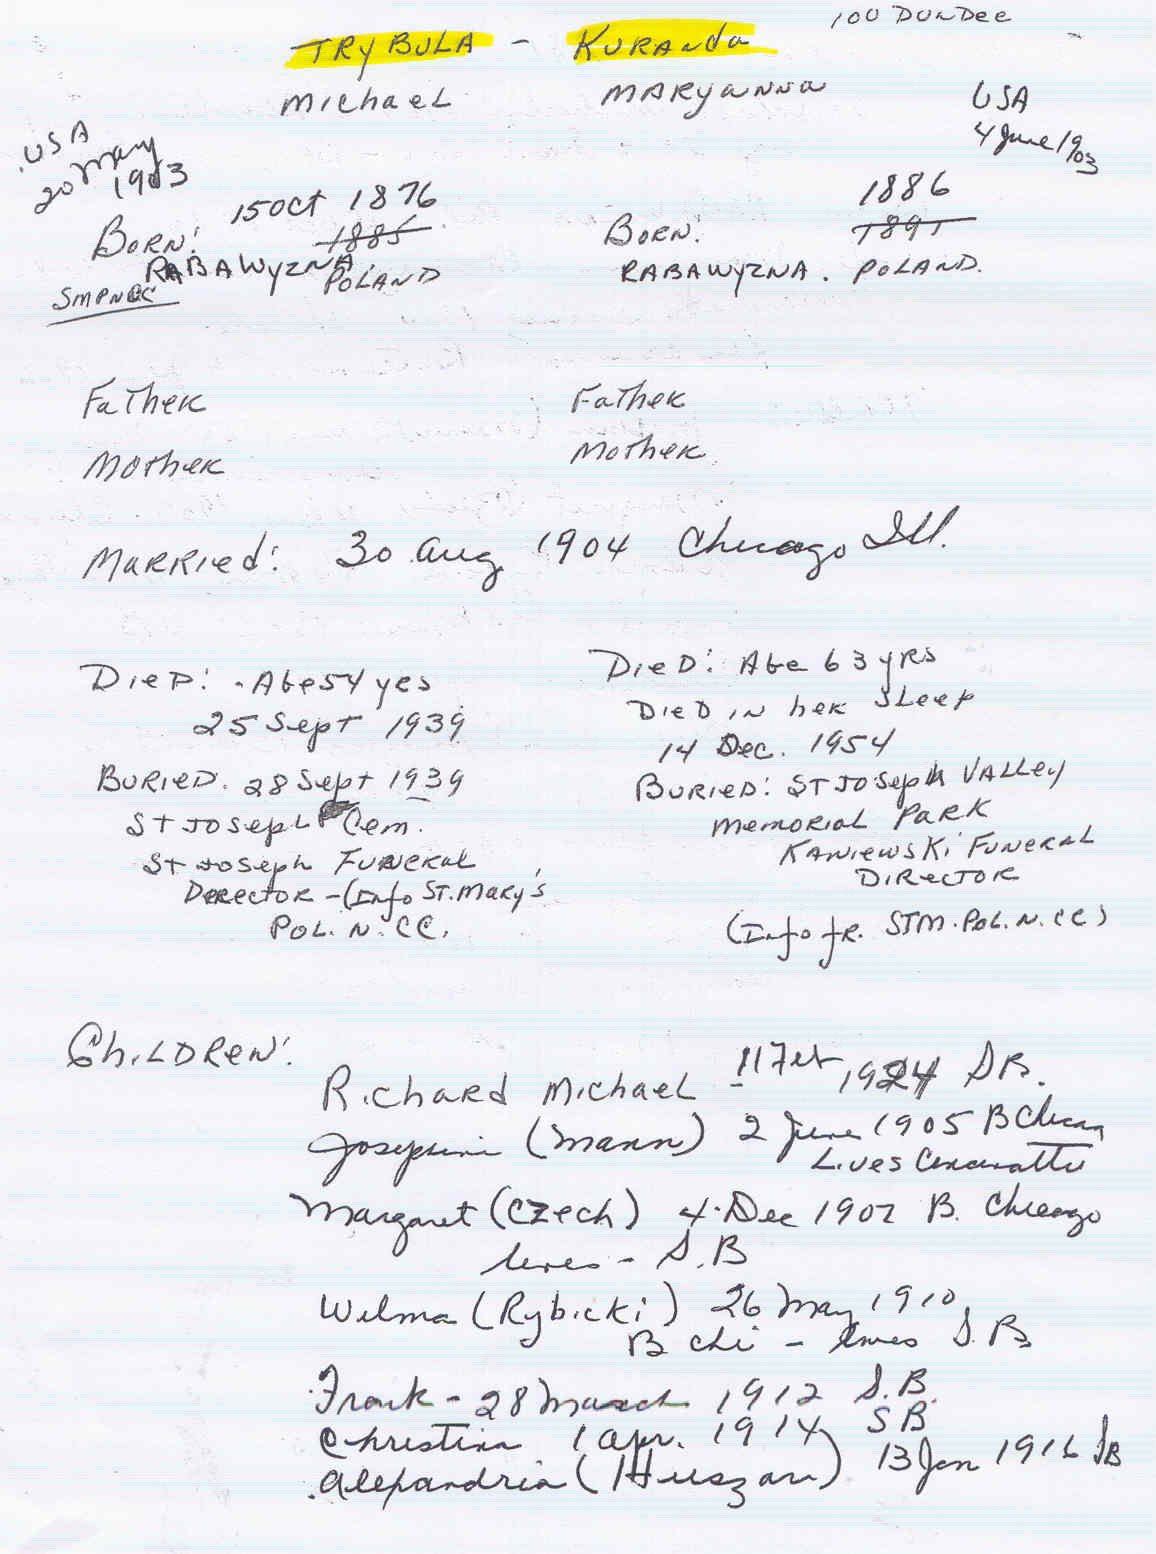 100 DUNDEE
TRYBULA - KURANda
Michael MARyanna
USA
20 May
1903
USA
4 June 1903
15 Oct 1876
Born: 1885
RABAWYZNA, POLAND
1886
Born: 1891
RABAWYZNA. POLAND.
Father Father
Mother Mother
Married: 30 Aug 1904 Chicago Ill.
Died: - Age 54 yrs
25 Sept 1939
Buried. 28 Sept 1939
St Joseph Cem.
St Joseph Funeral
Derector - (Info St. Mary's
Pol. N. CC.
Died: Age 63 yrs
Died in her sleep
14 Dec. 1954
Buried: St Joseph Valley
Memorial Park
Kaniewski Funeral
Director
(Info fr. STM. Pol. N. CC)
Children:
Richard Michael 11 Feb 1924 S.B.
Josephine (Mann) 2 June 1905 B
Lives
Margaret (Czech) 4 Dec 1907 B. Chicago
lives - S.B
Wilma (Rybicki) 26 May 1910
B Chi - lives S.B
Frank - 28 March 1912 S.B.
Christina 1 Apr. 1914 SB
Alexandria (Huszar) 13 Jan 1916 SB